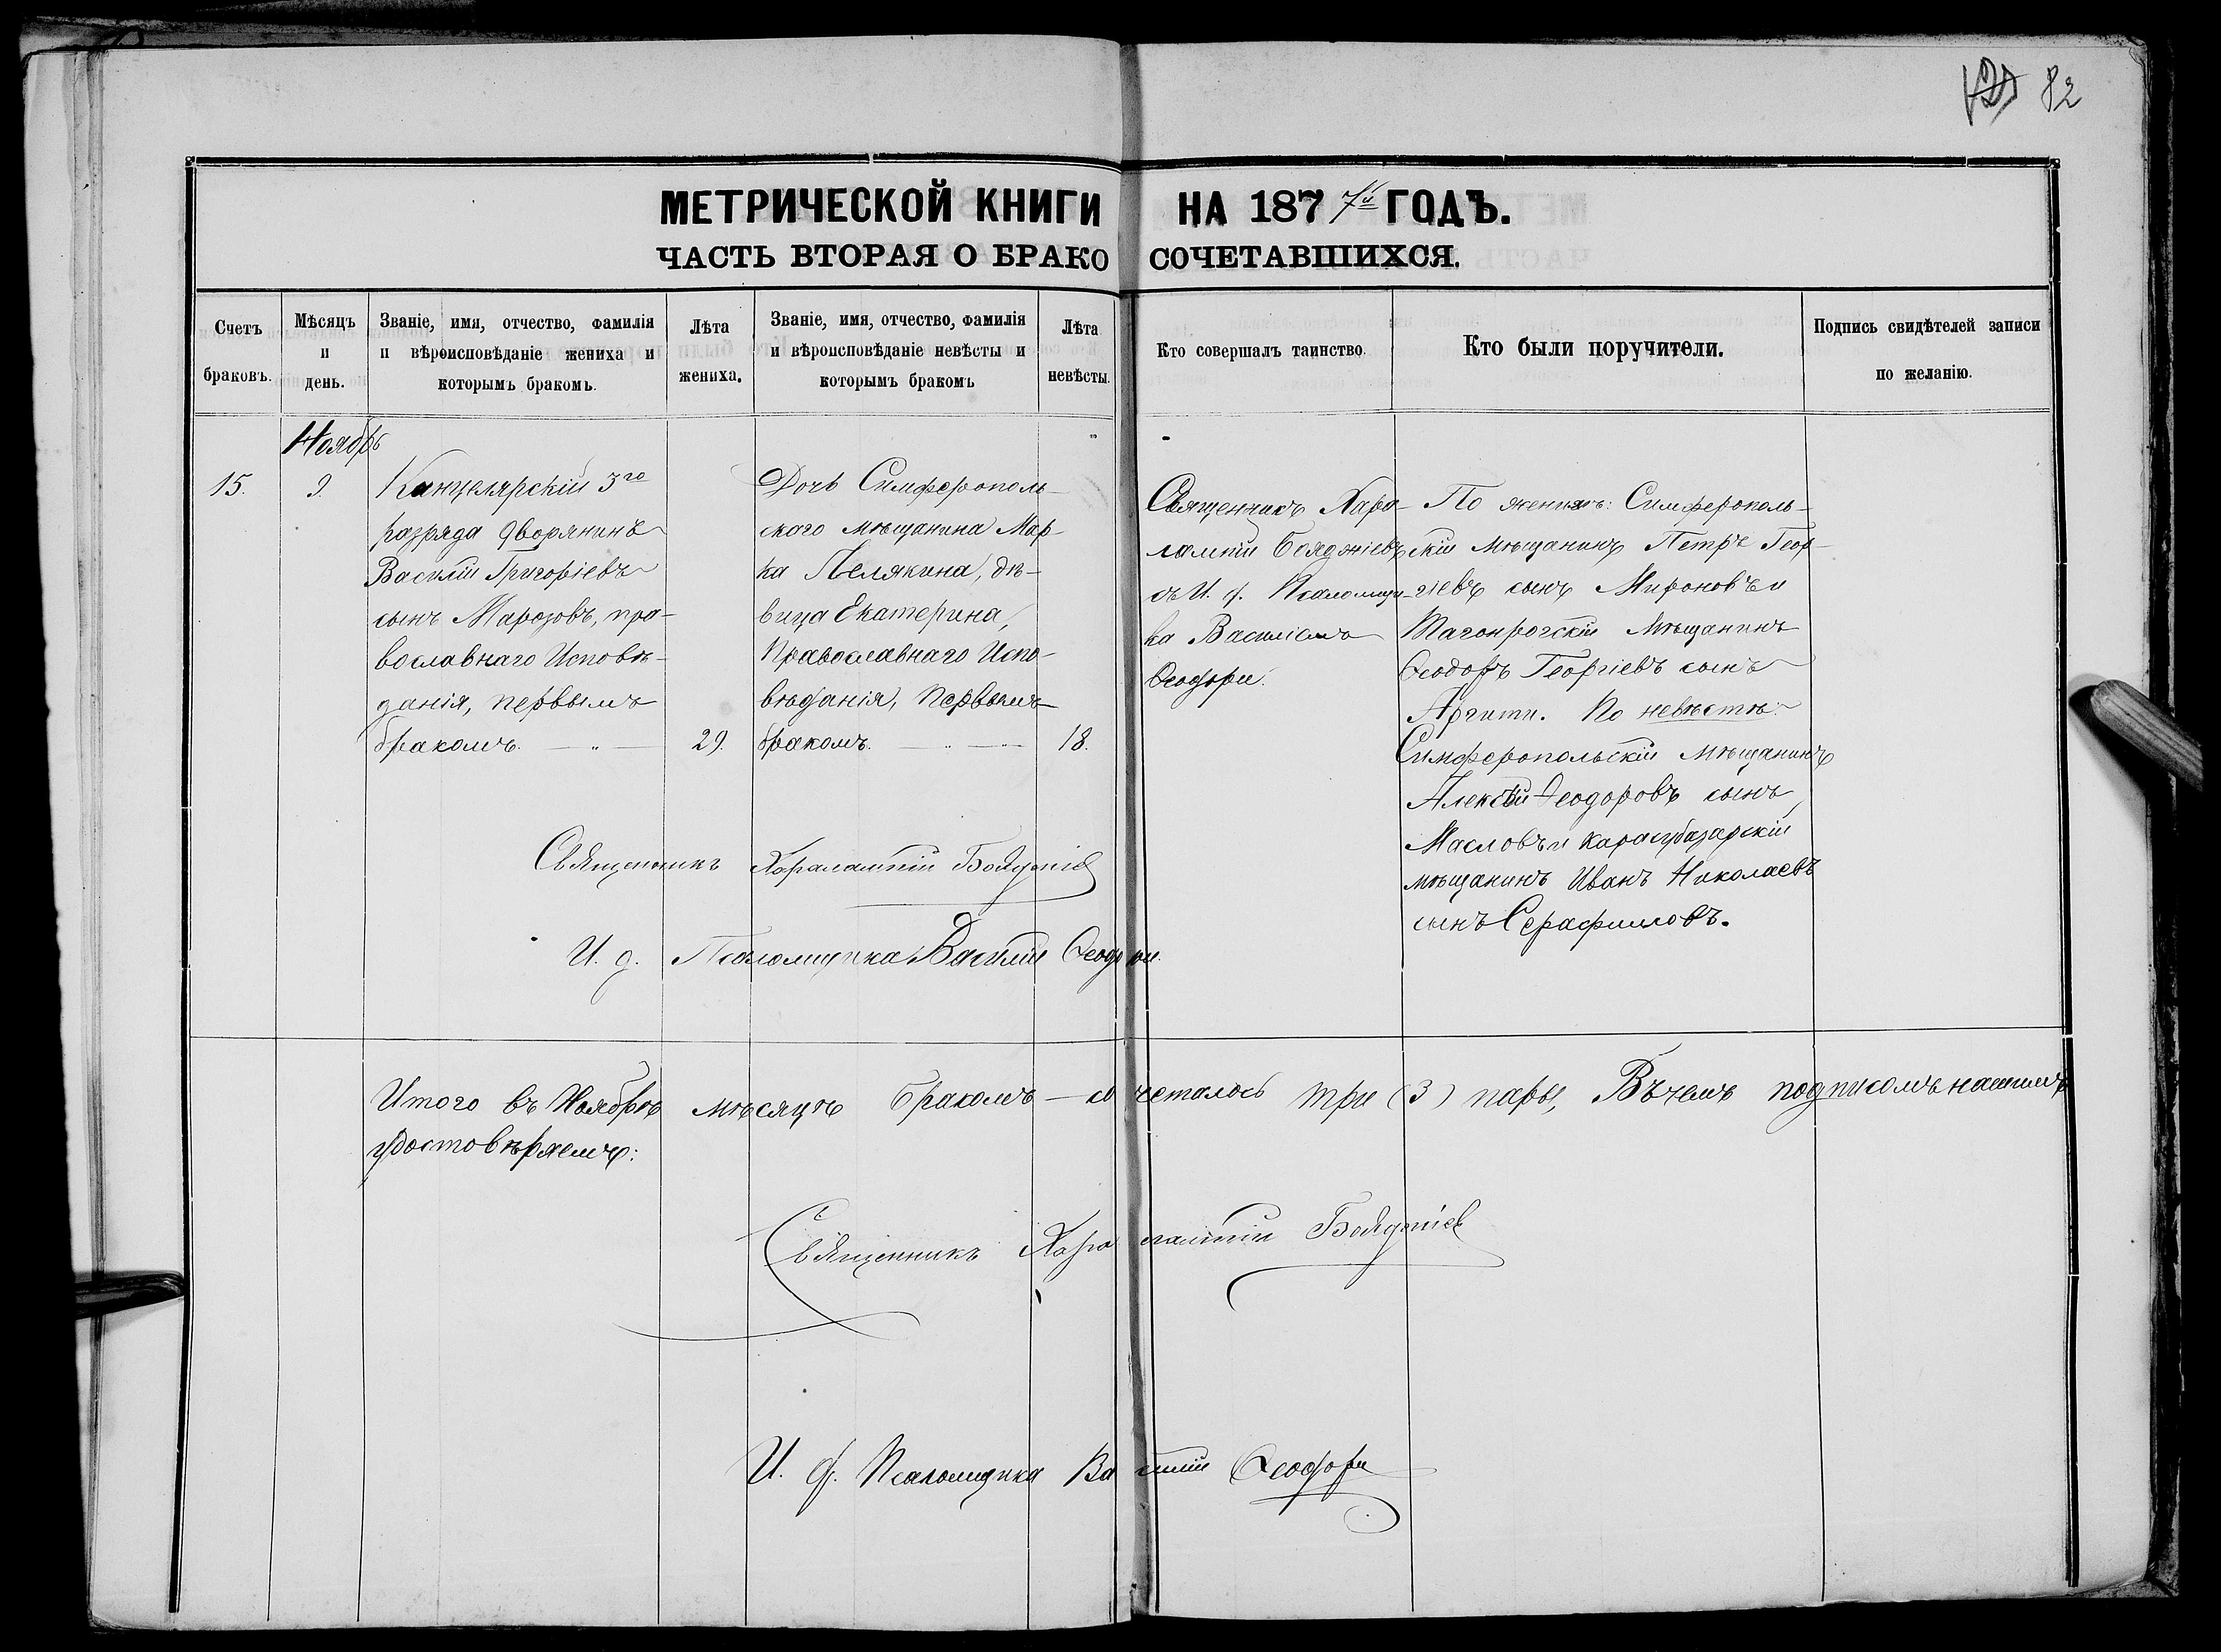 82
МЕТРИЧЕСКОЙ КНИГИ НА 1877й ГОДЪ.
ЧАСТЬ ВТОРАЯ О БРАКОСОЧЕТАВШИХСЯ.
Счетъ
браковъ.
Мѣсяцъ
и
день.
Званіе, имя, отчество, фамилія
и вѣроисповѣданіе жениха и
которымъ бракомъ.
Лѣта
жениха.
Званіе, имя, отчество, фамилія
и вѣроисповѣданіе невѣсты и
которымъ бракомъ
Лѣта
невѣсты.
Кто совершалъ таинство.
Кто были поручители.
Подпись свидѣтелей записи
по желанію.
Ноябрь
15.
9.
Канцелярскій 3го
разряда дворянинъ
Василій Григоріевъ
сынъ Марозовъ, пра-
вославнаго Исповѣ-
данія, первымъ
бракомъ. — „ —
29.
Дочь Симферополь-
скаго мѣщанина Мар-
ка Пелякина, дѣ-
вица Екатерина,
Православнаго Испо-
вѣданія, первымъ
бракомъ. „ —
18.
Священникъ Хара-
лампій Бояджіевъ
съ И. д. Псаломщи-
ка Василіемъ
Ѳеодори.
По женихѣ: Симферополь-
скій Мѣщанинъ Петръ Геор-
гіевъ сынъ Мироновъ и
Тагонрогскій Мѣщанинъ
Ѳеодоръ Георгіевъ сынъ
Аргити. По невѣстѣ:
Симферопольскій мѣщанинъ
Алексѣй Ѳеодоровъ сынъ
Масловъ и Карасубазарскій
мѣщанинъ Иванъ Николаевъ
сынъ Серафимовъ.
Священникъ Харалампій Бояджіев
И. д. Псаломщика Василій Ѳеодори.
Итого въ Ноябрѣ мѣсяцѣ бракомъ — сочеталось три (3) пары, Въ чемъ подписомъ нашимъ
удостовѣряемъ:
Священникъ Харалампій Бояджіев
И. д. Псаломщика Василій Ѳеодори